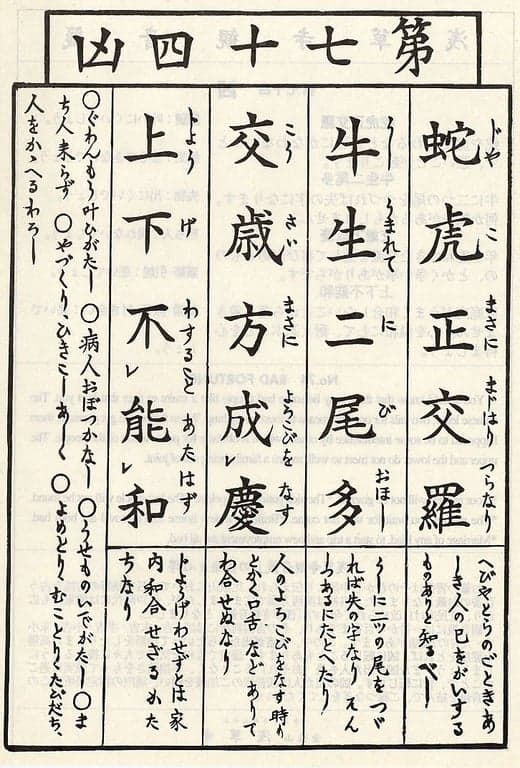 第七十四凶
じや こ まさに まじは つらなり
蛇虎正交羅
へびやとらのごときあ
しき人の已をがいする
ものありと知るべし
うし うまれ に び おほし
牛生一尾多
うしに二ツの尾をつづ
れば失の字なり
しあるにたとへたり
こう さい まさに よろこびを なす
交歳方成レ慶
人のよろこびをなす時も
とかく口舌などありて
わ合せぬなり
じよう げ わすること あたはず
上下不レ能レ和
わせずとは家
内和合せざるかた
ちなり
〇ぐわんもう叶ひがたし〇病人おぼつかなし〇うせものいでがたし〇ま
ち人来らず〇やづくりひきこしあしく〇よめとりむことりたびだち、
人をかゝへるわろし